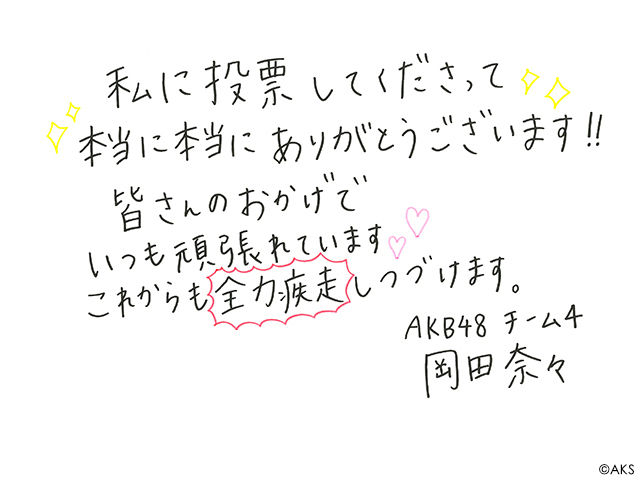 私に投票してくださって
本当に本当にありがとうございます!!
皆さんのおかげで
いつも頑張れています
これからも全力疾走しつづけます。
AKB48 チーム4
岡田奈々
©AKS